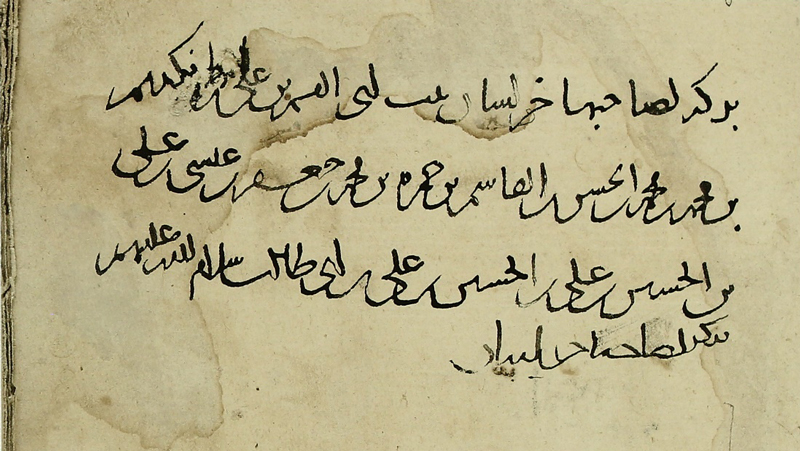 بركة لصاحبها خراسان بنت ابي القسم بن علي بن
بن محمد بن محمد بن الحسن بن القاسم بن حمزه بن محمد بن جعفر بن عيسى بن علي
بن الحسين بن علي بن الحسين بن علي بن ابي طالب سلام الله عليهم
بركة لصاحبها خراسان